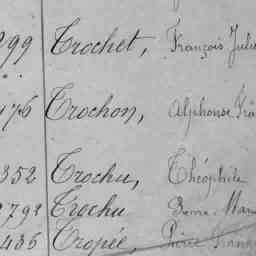 299 Trochet, François Julie
176 Trochon, Alphonse Fra
352 Trochu, Théophile
792 Trochu Pierre Marie
435 Tropée, Pierre